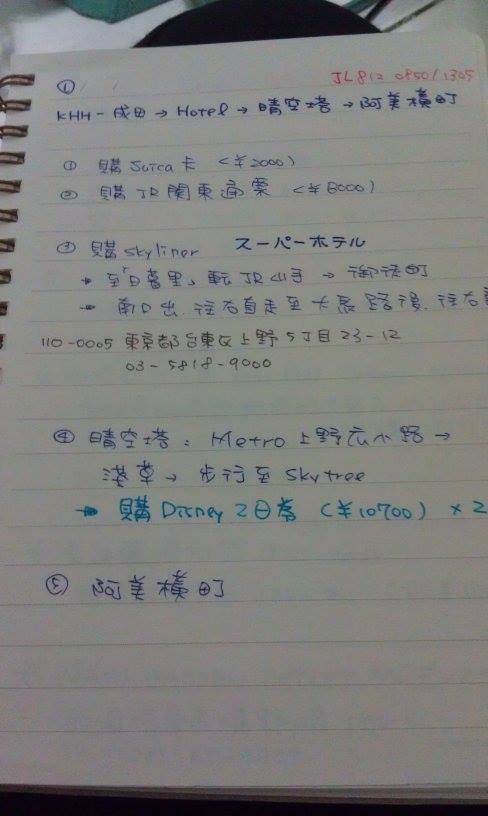 ① JL812 0850/1305
KHH-成田→Hotel→晴空塔→阿美橫町
① 購Suica卡 (¥2000)
② 購JR関東通票 (¥8000)
③ 購skyliner スーパーホテル
→ 至「日暮里」転JR山手→御徒町
→ 南口出,往右直走至大馬路後,往右
110-0005 東京都台東区上野5丁目23-12
03-5818-9000
④ 晴空塔:Metro上野広小路→
淺草→步行至Skytree
→ 購Disney 2日券 (¥10700) ×2
⑤ 阿美橫町